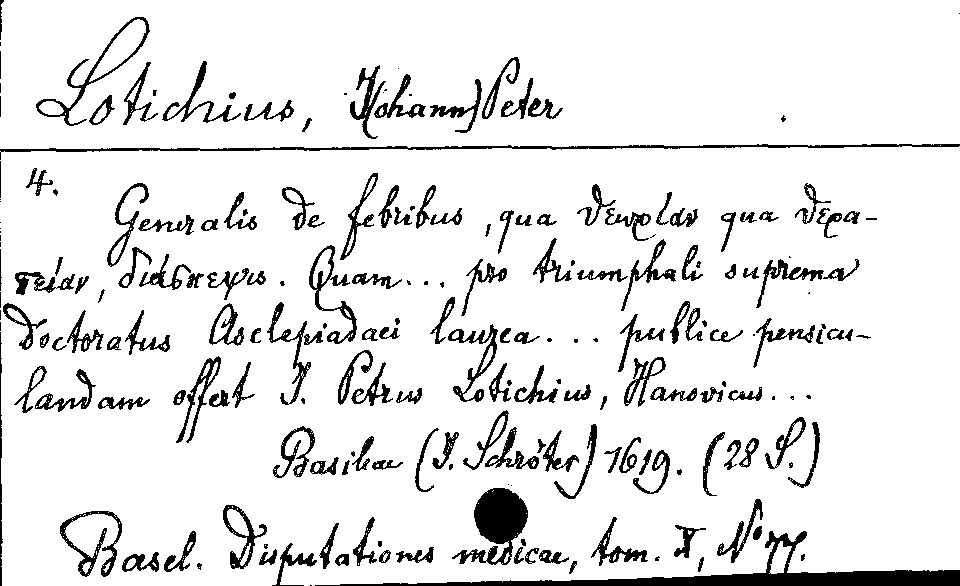 Lotichius, J[ohann] Peter
4.
Generalis de febribus, qua θεωρίαν qua θερα-
πείαν, διάσκεψις. Quam... pro triumphali suprema
Doctoratus Asclepiadaei laurea... publice pensicu-
landam offert J. Petrus Lotichius, Hanovicus...
Basileae (J. Schröter) 1619. (28 S.)
Basel. Disputationes medicae, tom. X, No 77.